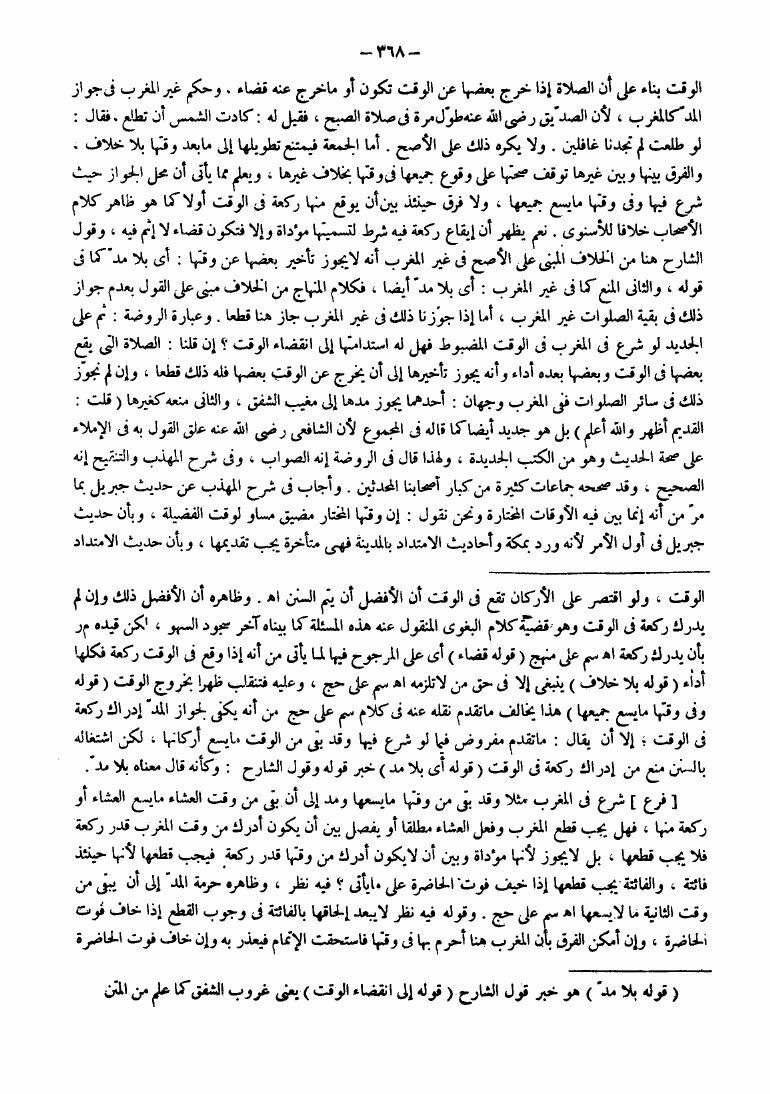 – ٣٦٨ –
الوقت بناء على أن الصلاة إذا خرج بعضها عن الوقت تكون أو ماخرج عنه قضاء . وحكم غير المغرب فى جواز
المدّ كالمغرب ، لأن الصدّيق رضى الله عنه طوّل مرة فى صلاة الصبح ، فقيل له : كادت الشمس أن تطلع . فقال :
لو طلعت لم تجدنا غافلين . ولا يكره ذلك على الأصح . أما الجمعة فيمتنع تطويلها إلى مابعد وقتها بلا خلاف .
والفرق بينها وبين غيرها توقف صحتها على وقوع جميعها فى وقتها بخلاف غيرها ، ويعلم مما يأتى أن محل الجواز حيث
شرع فيها وفى وقتها مايسع جميعها ، ولا فرق حينئذ بين أن يوقع منها ركعة فى الوقت أولا كما هو ظاهر كلام
الأصحاب خلافا للأسنوى . نعم يظهر أن إيقاع ركعة فيه شرط لتسميتها مؤداة وإلا فتكون قضاء لا إثم فيه ، وقول
الشارح هنا من الخلاف المبنى على الأصح فى غير المغرب أنه لايجوز تأخير بعضها عن وقتها : أى بلا مدّ كما فى
قوله ، والثانى المنع كما فى غير المغرب : أى بلا مدّ أيضا ، فكلام المنهاج من الخلاف مبنى على القول بعدم جواز
ذلك فى بقية الصلوات غير المغرب ، أما إذا جوّزنا ذلك فى غير المغرب جاز هنا قطعا . وعبارة الروضة : ثم على
الجديد لو شرع فى المغرب فى الوقت المضبوط فهل له استدامتها إلى انقضاء الوقت ؟ إن قلنا : الصلاة التى يقع
بعضها فى الوقت وبعضها بعده أداء وأنه يجوز تأخيرها إلى أن يخرج عن الوقت بعضها فله ذلك قطعا ، وإن لم نجوّز
ذلك فى سائر الصلوات ففى المغرب وجهان : أحدهما يجوز مدها إلى مغيب الشفق ، والثانى منعه كغيرها ( قلت :
القديم أظهر والله أعلم ) بل هو جديد أيضا كما قاله فى المجموع لأن الشافعى رضى الله عنه علق القول به فى الإملاء
على صحة الحديث وهو من الكتب الجديدة ، ولهذا قال فى الروضة إنه الصواب ، وفى شرح المهذب والتنقيح إنه
الصحيح ، وقد صححه جماعات كثيرة من كبار أصحابنا المحدثين . وأجاب فى شرح المهذب عن حديث جبريل بما
مرّ من أنه إنما بين فيه الأوقات المختارة ونحن نقول : إن وقتها المختار مضيق مساو لوقت الفضيلة ، وبأن حديث
جبريل فى أول الأمر لأنه ورد بمكة وأحاديث الامتداد بالمدينة فهى متأخرة يجب تقديمها ، وبأن حديث الامتداد
الوقت ، ولو اقتصر على الأركان تقع فى الوقت أن الأفضل أن يتم السنن اه . وظاهره أن الأفضل ذلك وإن لم
يدرك ركعة فى الوقت وهو قضية كلام البغوى المنقول عنه هذه المسئلة كما بيناه آخر سجود السهو ، لكن قيده مر
بأن يدرك ركعة اه سم على منهج ( قوله قضاء ) أى على المرجوح فيها لما يأتى من أنه إذا وقع فى الوقت ركعة فكلها
أداء ( قوله بلا خلاف ) ينبغى إلا فى حق من لاتلزمه اه سم على حج ، وعليه فتنقلب ظهرا بخروج الوقت ( قوله
وفى وقتها مايسع جميعها ) هذا يخالف ماتقدم نقله عنه فى كلام سم على حج من أنه يكفى لجواز المدّ إدراك ركعة
فى الوقت ؛ إلا أن يقال : ماتقدم مفروض فيما لو شرع فيها وقد بقى من الوقت مايسع أركانها ، لكن اشتغاله
بالسنن منع من إدراك ركعة فى الوقت ( قوله أى بلا مد ) خبر قوله وقول الشارح : وكأنه قال معناه بلا مدّ .
[ فرع ] شرع فى المغرب مثلا وقد بقى من وقتها مايسعها ومد إلى أن بقى من وقت العشاء مايسع العشاء أو
ركعة منها ، فهل يجب قطع المغرب وفعل العشاء مطلقا أو يفصل بين أن يكون أدرك من وقت المغرب قدر ركعة
فلا يجب قطعها ، بل لايجوز لأنها مؤداة وبين أن لايكون أدرك من وقتها قدر ركعة فيجب قطعها لأنها حينئذ
فائتة ، والفائتة يجب قطعها إذا خيف فوت الحاضرة على مايأتى ؟ فيه نظر ، وظاهره حرمة المدّ إلى أن يبقى من
وقت الثانية ما لايسعها اه سم على حج . وقوله فيه نظر لايبعد إلحاقها بالفائتة فى وجوب القطع إذا خاف فوت
الحاضرة ، وإن أمكن الفرق بأن المغرب هنا أحرم بها فى وقتها فاستحقت الإتمام فيعذر به وإن خاف فوت الحاضرة
( قوله بلا مدّ ) هو خبر قول الشارح ( قوله إلى انقضاء الوقت ) يعنى غروب الشفق كما علم من المتن